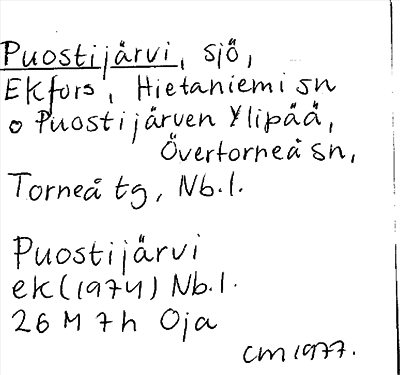 Puostijärvi, sjö,
Ekfors, Hietaniemi sn
o Puostijärven Ylipää,
Övertorneå sn,
Torneå tg, Nb.l.
Puostijärvi
ek (1974) Nb.l.
26 M 7h Oja
CM 1977.